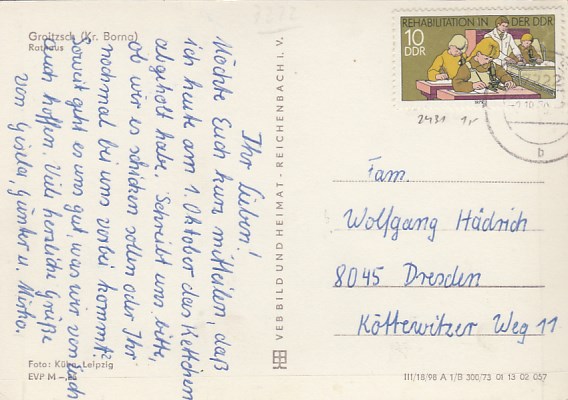 7222
Groitzsch (Kr. Borna)
Rathaus
Ihr Lieben!
Möchte Euch kurz mitteilen, daß
ich heute am 1. Oktober das Kettchen
abgeholt habe. Schreibt uns bitte,
ob wir es schicken sollen oder Ihr
nochmal bei uns vorbei kommt?
Soweit geht es uns gut, was wir von Euch
auch hoffen. Viele herzliche Grüße
von Gisela, Günter u. Mirko.
Foto: Kühn, Leipzig
EVP M
VEB BILD UND HEIMAT · REICHENBACH I. V.
REHABILITATION IN DER DDR
10
DDR
7222
b
2431
Fam.
Wolfgang Hädrich
8045 Dresden
Köttewitzer Weg 11
III/18/98 A 1/B 300/73 01 13 02 057